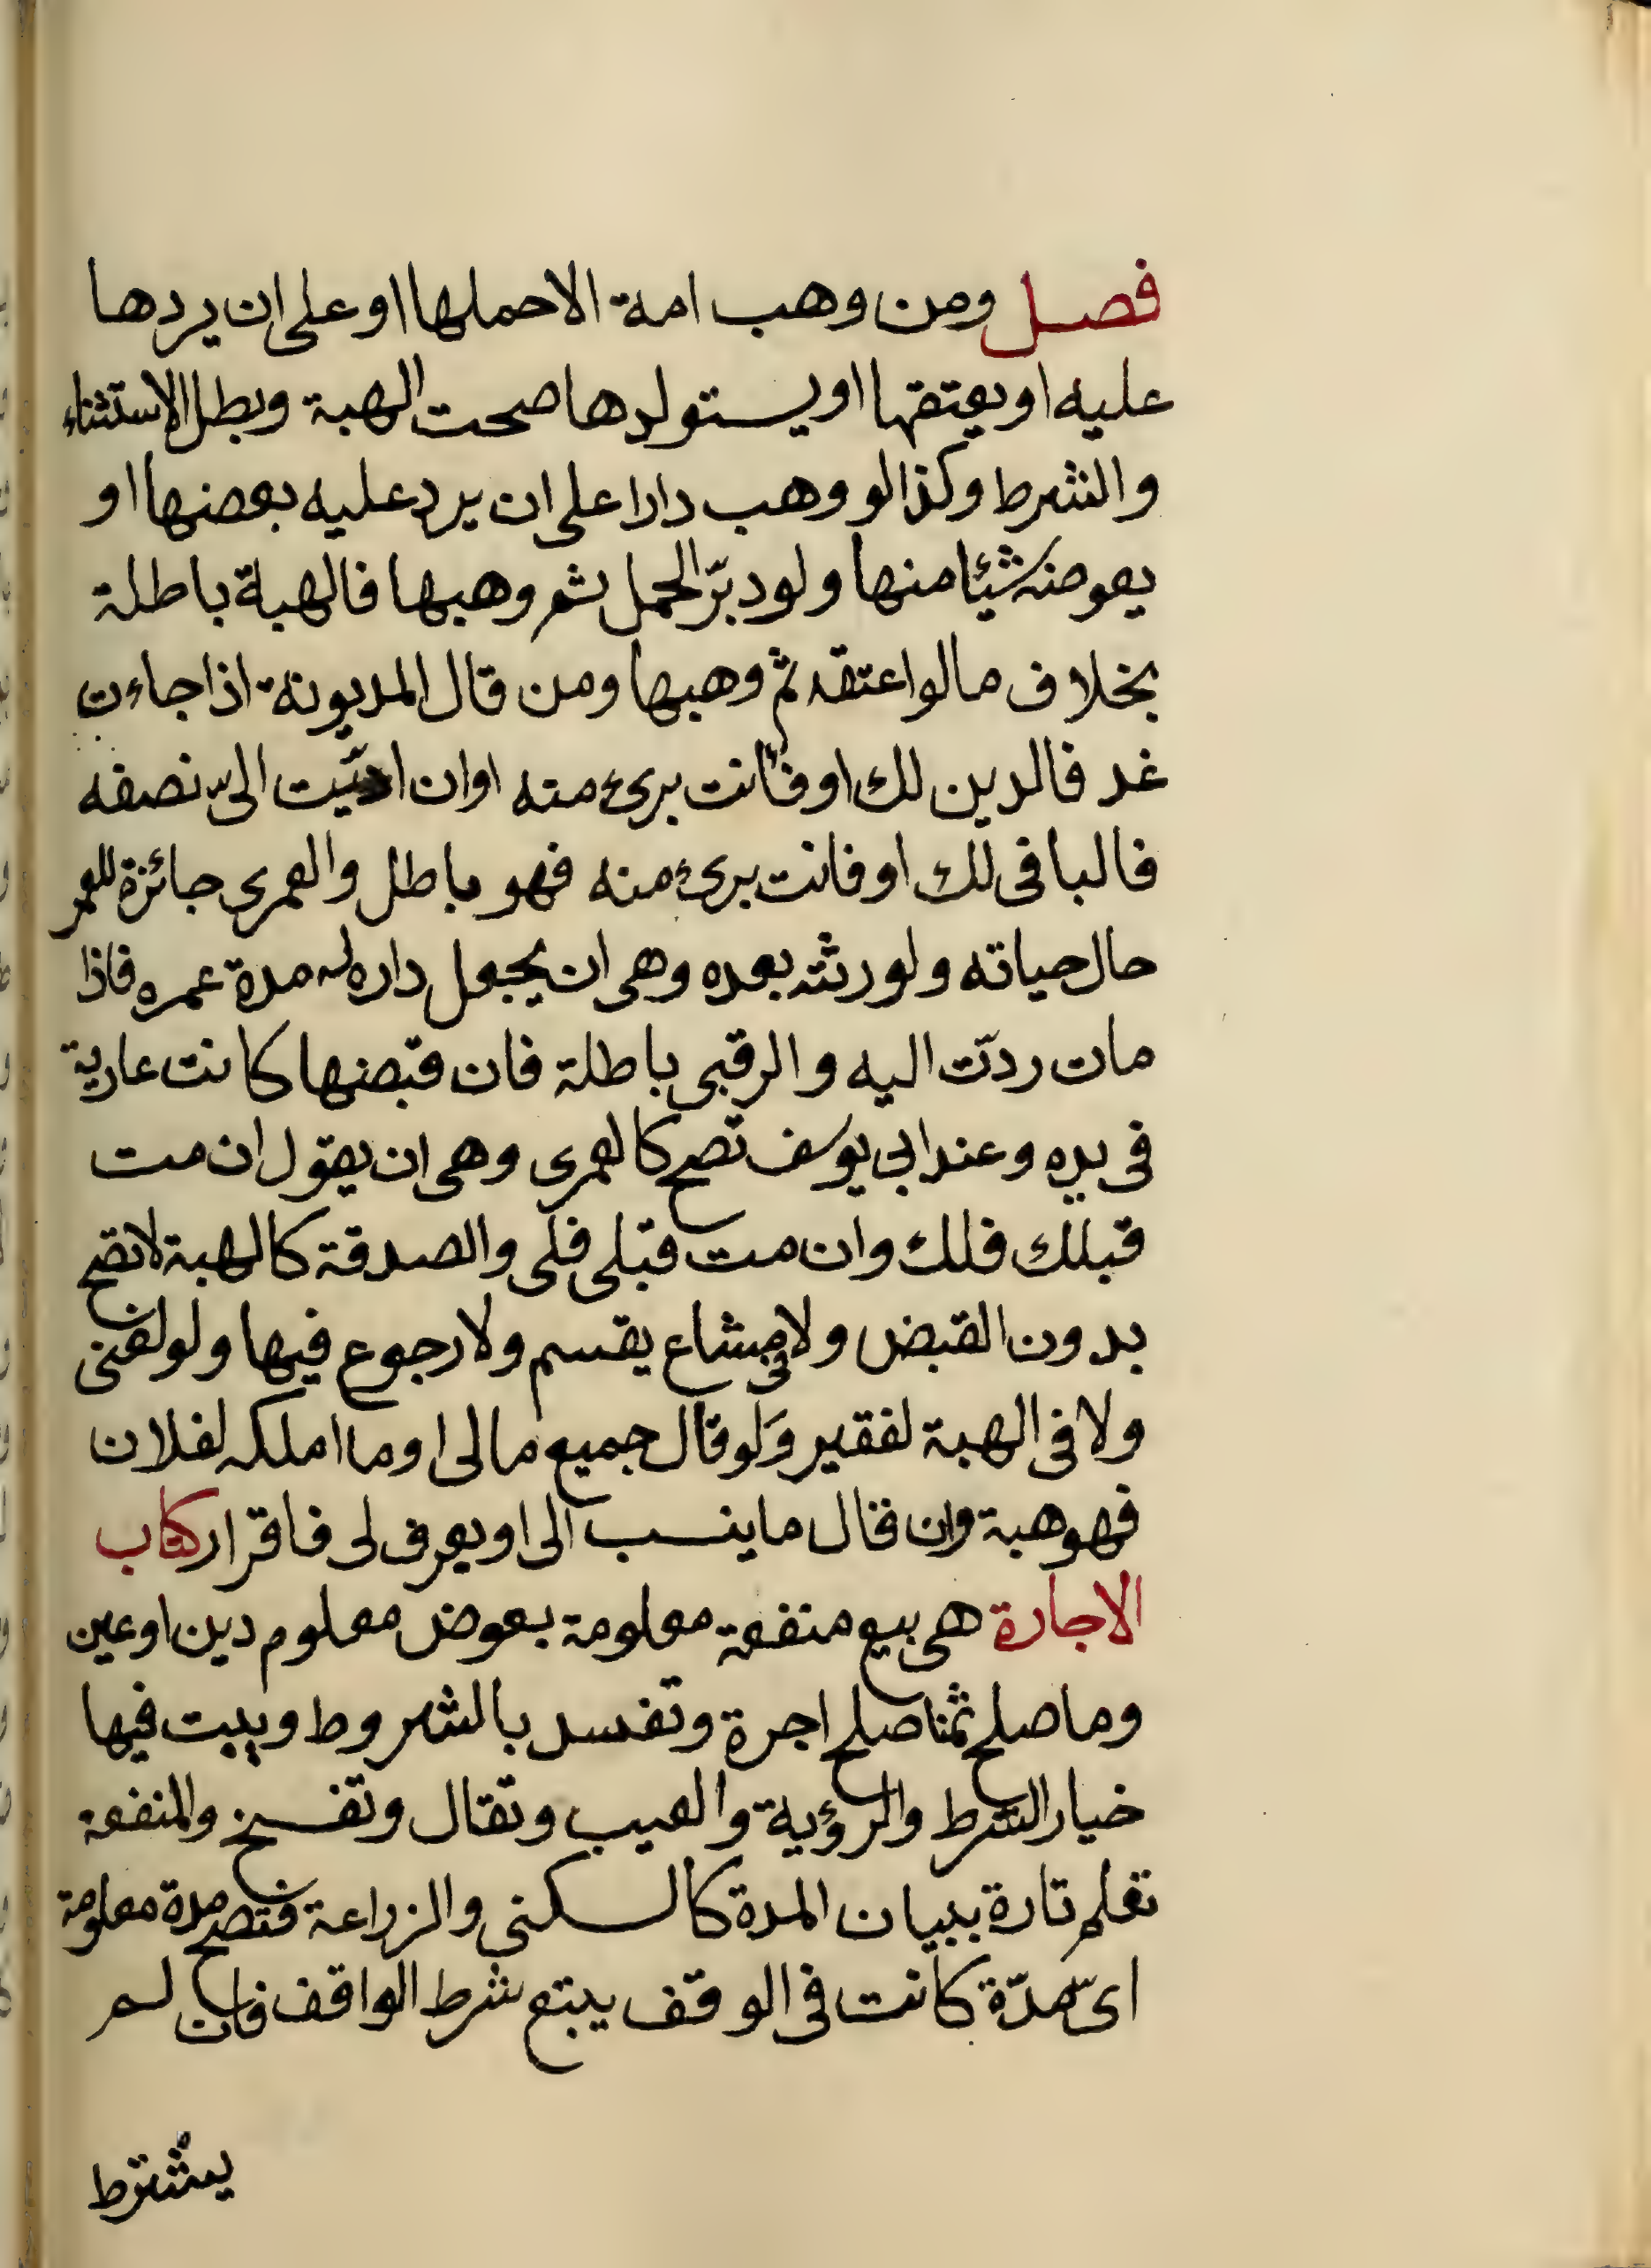 فصل ومن وهب امة الاحملها او على ان يردها
عليه او يعتقها او يستولدها صحت الهبة وبطل الاستثناء
والشرط وكذا لو وهب دارا على ان يرد عليه بعضها او
يعوضه شيئا منها ولو دبّر الحمل ثم وهبها فالهبة باطلة
بخلاف ما لو اعتقه ثم وهبها ومن قال المديونة اذا جاءت
غد فالدين لك او فانت برئ منه اوان ادّيت الىّ نصفه
فالباقى لك او فانت برئ منه فهو باطل والعمرى جائزة للعمر
حال حياته ولورثته بعده وهى ان يجعل داره له مدة عمره فاذا
مات ردّت اليه والرقبى باطلة فان قبضها كانت عارية
فى يده وعند ابى يوسف تصح كالعمرى وهى ان يقول ان مت
قبلك فلك وان مت قبلى فلى والصدقة كالهبة لا تصح
بدون القبض ولا فى مشاع يقسم ولا رجوع فيها ولو لغنى
ولا فى الهبة لفقير وَلو قال جميع مالى او ما املكه لفلان
فهو هبة وان قال ما ينسب الى او يعرف لى فاقرار كتاب
الاجارة هى بيع منفعة معلومة بعوض معلوم دين او عين
وما صلح ثمنا صلح اجرة وتفسد بالشروط ويثبت فيها
خيار الشرط والرؤية والعيب وتقال وتفسخ والمنفعة
تعلم تارة ببيان المدة كالسكنى والزراعة فتصح مدة معلومة
اىّ مدّة كانت فى الوقف يتبع شرط الواقف فان لم
يشترط